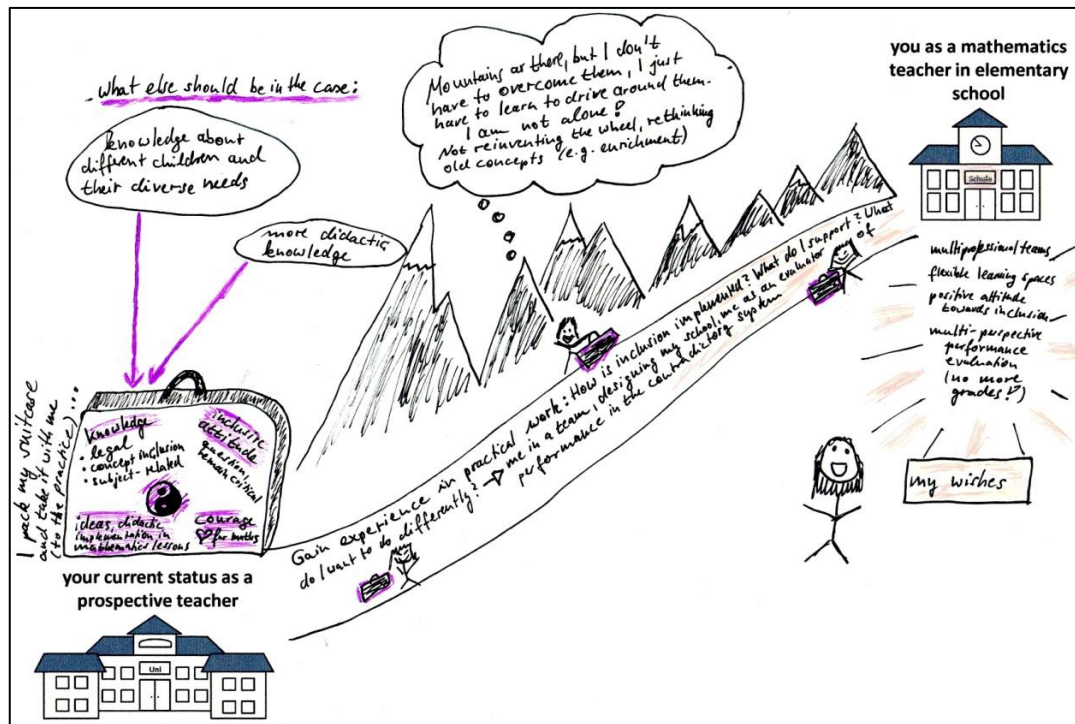 what else should be in the case:
knowledge about
different children and
their diverse needs
more didactic
knowledge
Mountains ar there, but I don't
have to overcome them, I just
have to learn to drive around them.
I am not alone!
Not reinventing the wheel, rethinking
old concepts (e.g. enrichment)
you as a mathematics
teacher in elementary
school
Schule
multiprofessional teams
flexible learning spaces
positive attitude
towards inclusion
multi-perspective
performance
evaluation
(no more
grades!)
my wishes
I pack my suitcase
and take it with me
(to the practice)...
knowledge
• legal
• concept inclusion
• subject-related
inclusive
attitude
question,
remain critical
ideas, didactic
implementation in
mathematics lessons
courage
♡ for maths
Gain experience in practical work: How is inclusion implemented? What do I support? What
do I want to do differently? → me in a team, designing my school, me as an evaluator of
performance in the contradictory system
your current status as a
prospective teacher
Uni